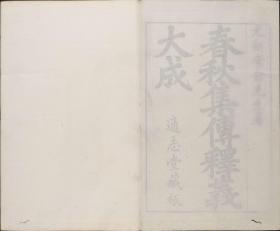 春秋集傳釋義
大成
通志堂藏版